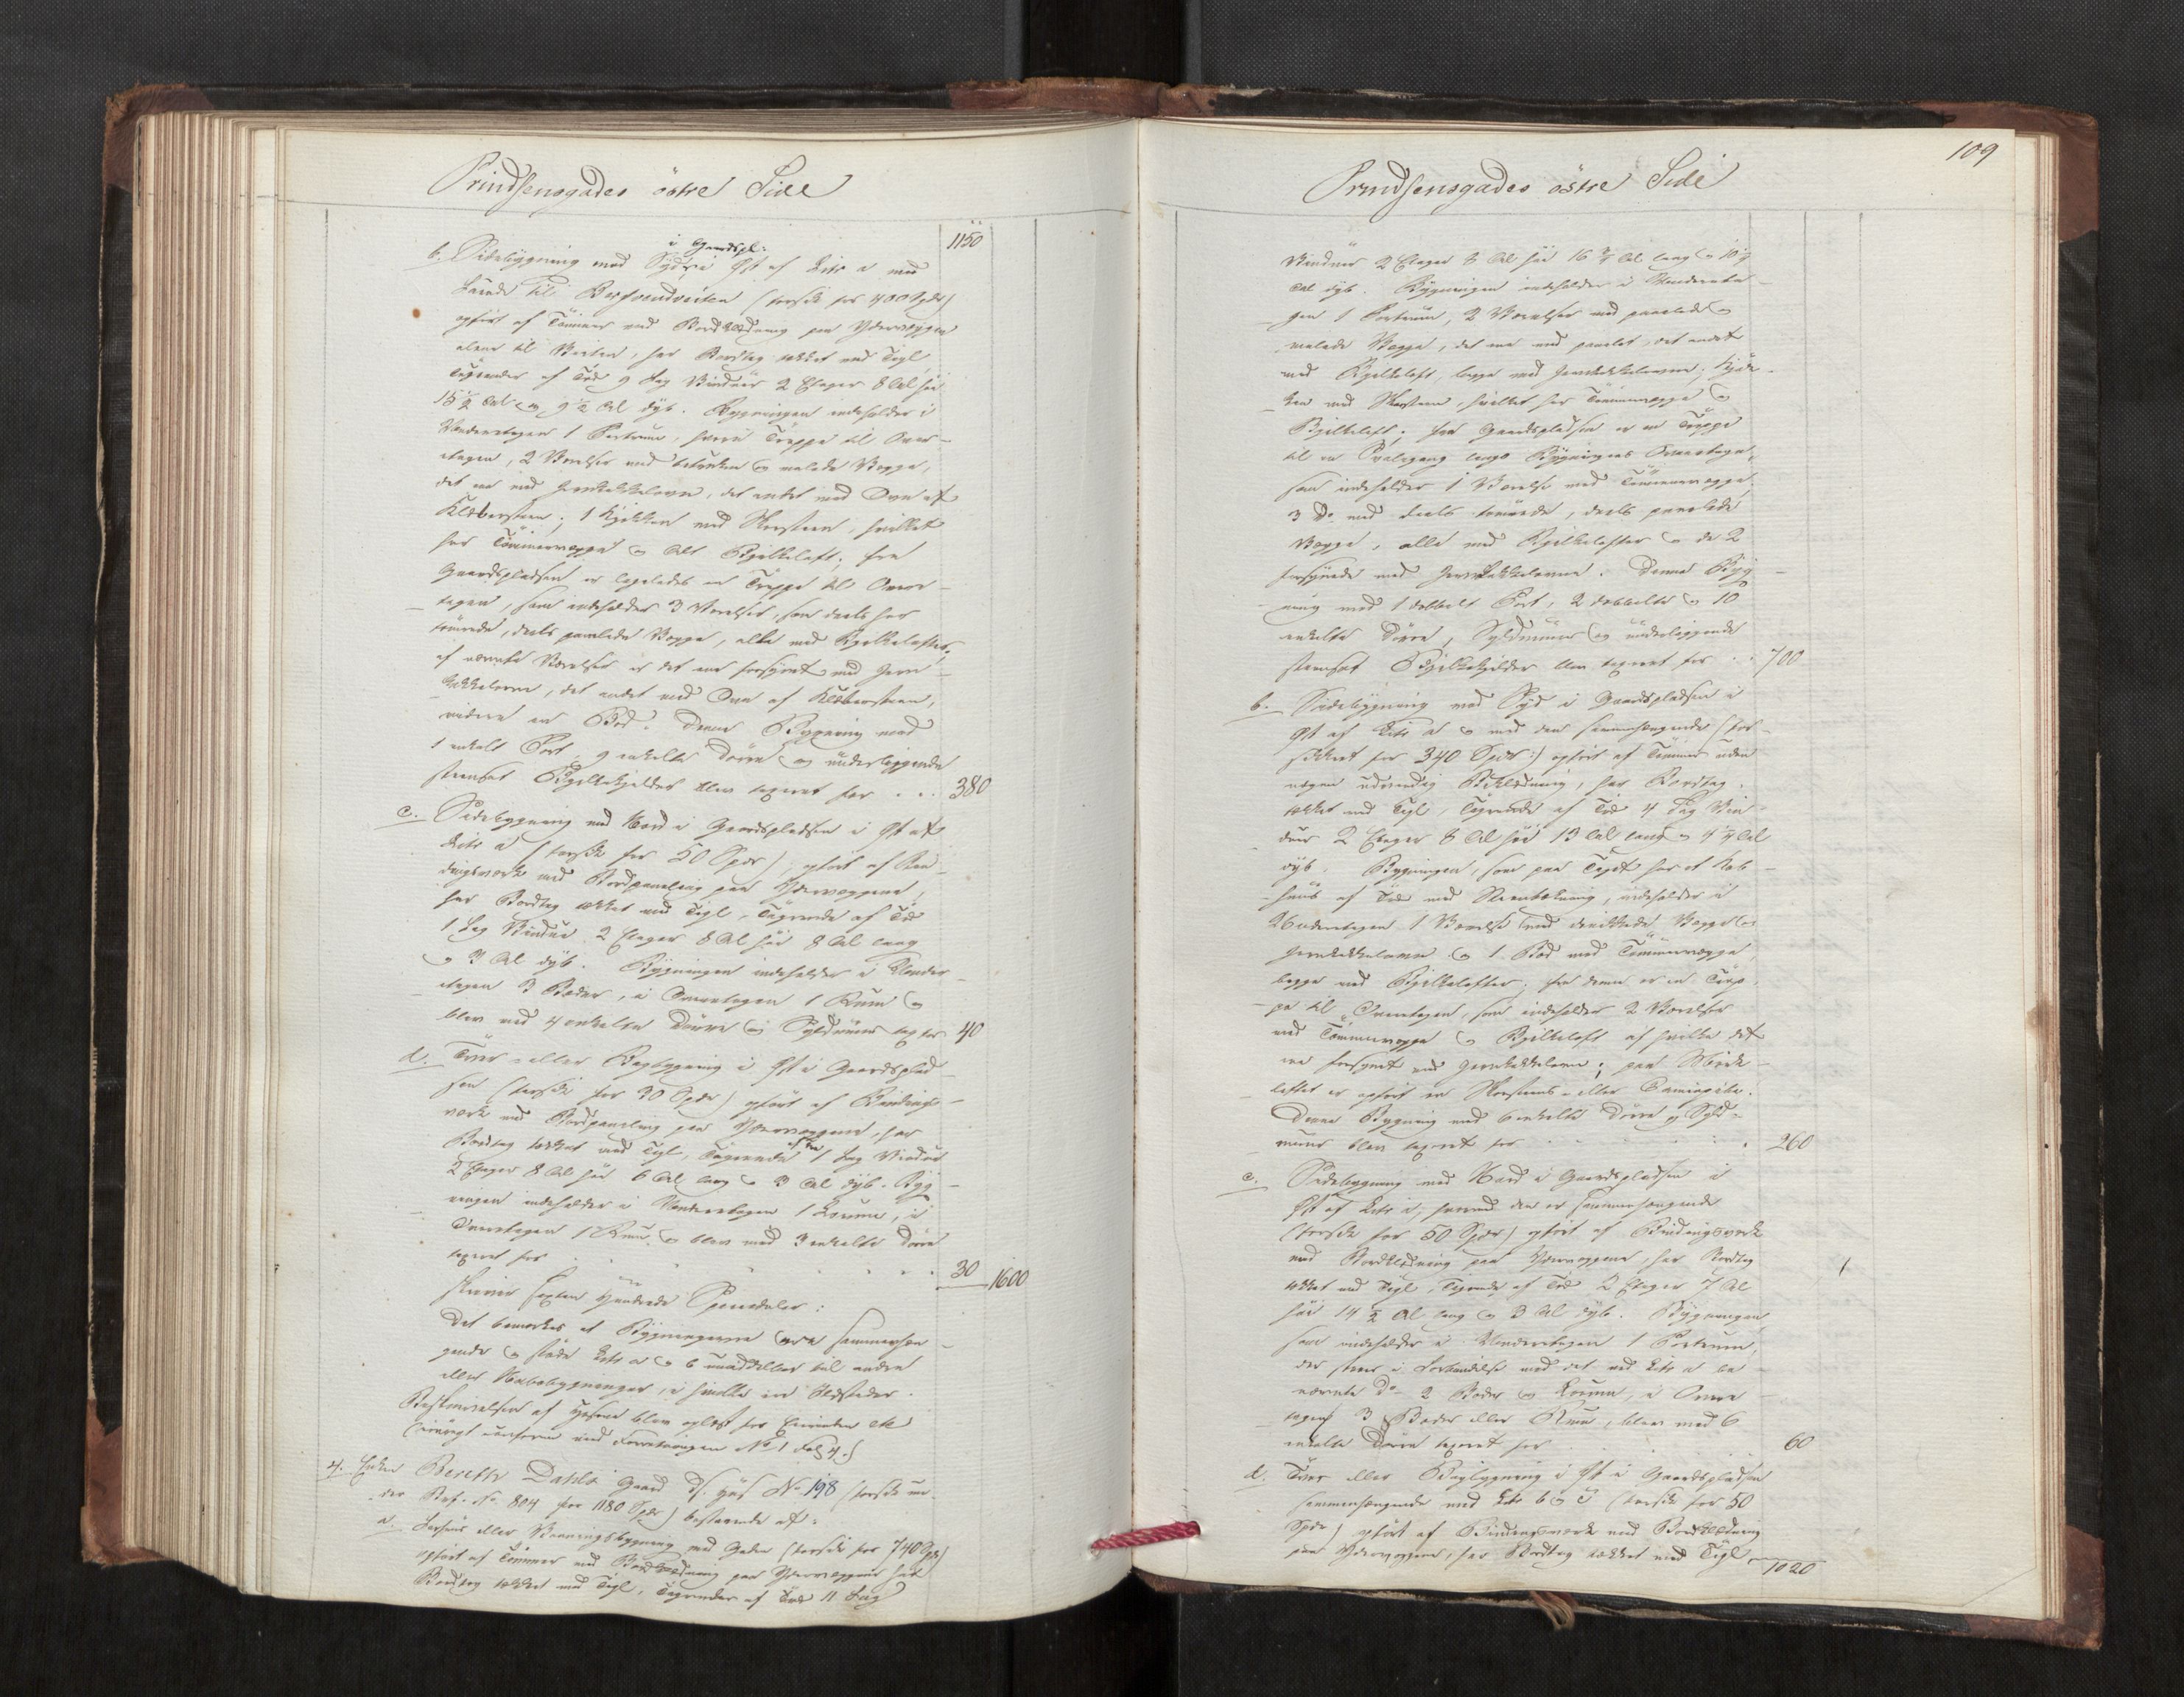 Prindsensgades östre Side
1150
i Gaardspl:
b. Sidebygning mod Syd i Øst af Litr a med
Facade til (forsikr for 400 Spdr)
opført af Tömmer med Bordklædning paa Ydervæggen
alene til Veiten, har Bordtag tækket med Tigl,
Tagrender af Træ 9 Fag Vinduer 2 Etager 8 Al høi
15 1/2 Al og 9 1/2 Al dyb. Bygningen indeholder i
Underetagen 1 Portrum, hvori Trappe til Over-
etagen, 2 Værelser med betrukne og malede Vægge,
det ene med Jernkakkelovn, det andet med Ovn af
Klæbersteen; 1 Kjøkken med Skorsteen, hvilket
har Tömmervægge og Alt Bjelkeloft; fra
Gaardspladsen er ligeledes en Trappe til Overe-
tagen, som indeholder 3 Værelser, som deels har
tömrede, deels panelede Vægge, alle med Bjelkelofter,
af nævnte Værelser er det ene forsynet med Jern-
kakkelovn, det andet med Ovn af Klæbersteen,
videre en Bod. Denne Bygning med
1 enkelt Port, 9 enkelte Dörre og underliggende
steensat Bjelkekjelder blev taxeret for . . . 380
c. Sidebygning mod Nord i Gaardspladsen i Øst af
Litr a (forsikr for 50 Spdr) opført af Bin-
dingsværk med Bordpaneling paa Ydervæggene,
har Bordtag tækket med Tigl, Tagrende af Træ
1 Fag Vindue 2 Etager 8 Al høi 8 Al lang
og 3 Al dyb. Bygningen indeholder i Under-
etagen 3 Boder, i Overetagen 1 Rum og
blev med 4 enkelte Dörre og Syldmuur tax for 40
d. Tvær- eller Bagbygning i Øst i Gaardsplad-
sen (forsikr for 30 Spdr) opført af Bindings-
værk med Bordpaneling paa Ydervæggene, har
Bordtag tækket med Tigl, Tagrende af Træ 1 Fag Vindue
2 Etager 8 Al høi 6 Al lang og 3 Al dyb. Byg-
ningen indeholder i Underetagen 1 Locum, i
Overetagen 1 Rum og blev med 3 enkelte Dörre
taxeret for . . . . . 30 1600
skriver Sexten Hundrede Speciedaler:
Det bemærkes at Bygningerne ere sammenhæn-
gende og støde Litr a og b umiddelbar til andre
eller Nabobygninger, i hvilke ere Ildsteder.
Beskrivelsen af Husene blev oplæst for Eieren etc
(iøvrigt conform med Forretningen No 1 Fol 4.)
4. Enken Bereth Dahls Gaard ds. Huus No 198 (forsikr un-
der Bef. No 804 for 1180 Spdr) bestaaende af:
a. Forhuus eller Vaaningsbygning mod Gaden (forsikr for 740 Spdr)
opført af Tömmer med Bordklædning paa Ydervæggene har
Bordtag tækket med Tigl, Tagrender af Træ 11 Fag
109
Prindsensgades östre Side
Vinduer 2 Etager 8 Al høi 16 3/4 Al lang og 10 1/2
Al dyb. Bygningen indeholder i Undereta-
gen 1 Portrum, 2 Værelser med panelede og
malede Vægge, det ene med panelet, det andet
med Bjelkeloft begge med Jernkakkelovne; Kjök-
ken med Skorsteen, hvilket har Tömmervægge og
Bjelkeloft; fra Gaardspladsen er en Trappe
til en Svalegang langs Bygningens Overetage,
som indeholder 1 Værelse med Tömmervægge,
3 do med deels tömrede, deels panelede
Vægge, alle med Bjelkelofter og de 2
forsynede med Jernkakkelovne. Denne Byg-
ning med 1 dobbelt Port, 2 dobbelte og 10
enkelte Dörre, Syldmuur og underliggende
steensat Bjelkekjelder blev taxeret for . . 700
b. Sidebygning mod Syd i Gaardspladsen i
Øst af Litr a og med den sammenhængende (for-
sikret for 340 Spdr:) opført af Tömmer uden
nogen udvendig Beklædning, har Bordtag
tækket med Tigl, Tagrende af Træ 4 Fag Vin-
duer 2 Etager 8 Al høi 13 Al lang og 4 1/2 Al
dyb. Bygningen, som paa Taget har et
af Træ med indeholder i
Underetagen 1 Værelse med Vægge og
Jernkakkelovn og 1 Bod med Tömmervægge,
begge med Bjelkelofter; fra denne er en Trap-
pe til Overetagen, som indeholder 2 Værelser
med Tömmervægge og Bjelkeloft af hvilke det
ene forsynet med Jernkakkelovn; paa Mörk-
loftet er opført en Skorsteens- eller
Denne Bygning med 6 enkelte Dörre og Syld-
muur blev taxeret for . . . . 260
c. Sidebygning mod Nord i Gaardspladsen i
Øst af Litr a, hvormed den er sammenhængende
(forsikr for 50 Spdr) opført af Bindingsværk
med Bordklædning paa Ydervæggene, har Bordtag
tækket med Tigl, Tagrende af Træ 2 Etager 7 Al
høi 14 1/2 Al lang og 3 Al dyb. Bygningen,
som indeholder i Underetagen 1 Portrum,
der staaer i Forbindelse med det ved Litr a be-
nævnte do 2 Boder og Locum, i Overe-
tagen 3 Boder eller Rum, blev med 6
enkelte Dörre taxeret for . . . 60
d. Tvær eller Bagbygning i Øst i Gaardspladsen
sammenhængende med Litr b og c (forsikr for 50
Spdr) opført af Bindingsværk med Bordklædning
paa Ydervæggene, har Bordtag tækket med Tigl
1020